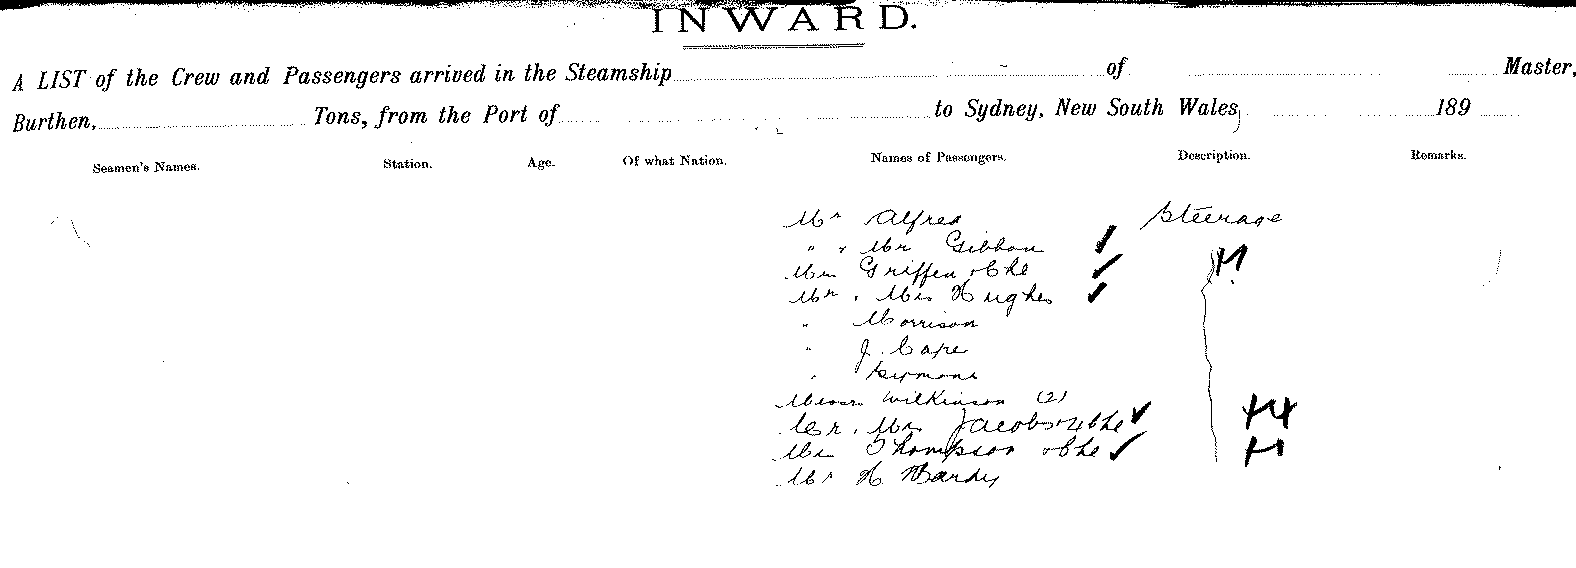 INWARD.
A LIST of the Crew and Passengers arrived in the Steamship of Master,
Burthen, Tons, from the Port of to Sydney, New South Wales, 189
Seamen's Names. Station. Age. Of what Nation. Names of Passengers. Description. Remarks.
Mr Alfred Steerage
" " Mr Gibbon
Mrs Griffen & Che
Mr . Mrs Hughes
" Morrison
" J. Cape
"
Messrs Wilkinson (2)
Mr . Mrs Jacobs & 4 Che
Mrs Thompson & Che
Mr H Hardy